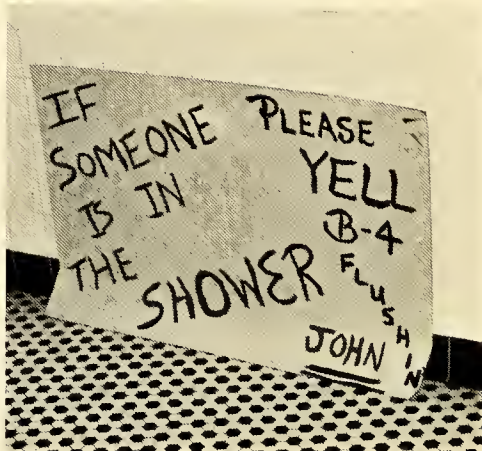 IF
SOMEONE
IS IN
THE
SHOWER
PLEASE
YELL
B-4
FLUSHIN
JOHN